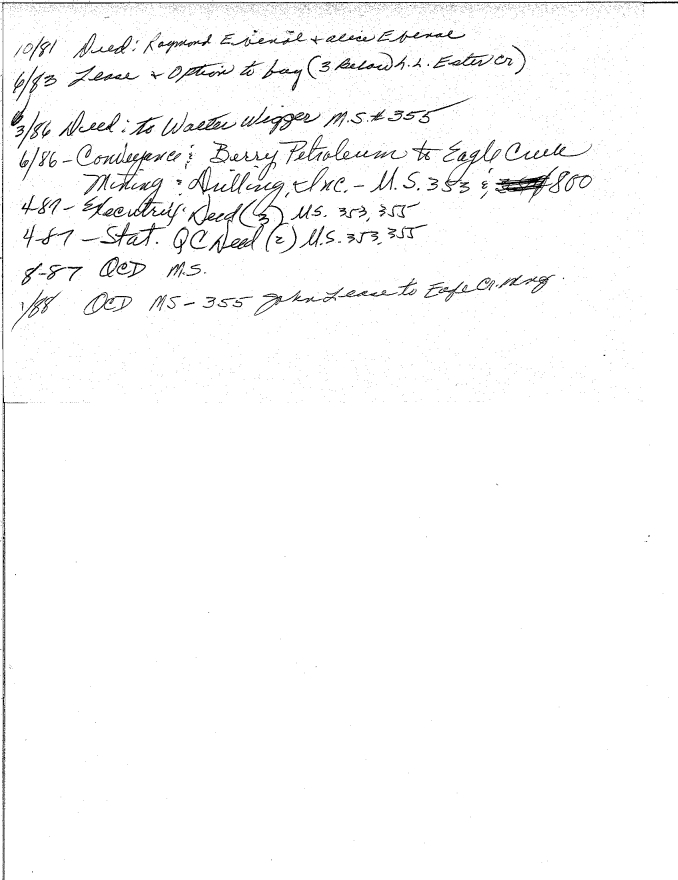 10/81 Deed: Raymond Evenal + alice Evenal
6/83 Lease + Option to buy (3 Below L.L. Ester Cr)
3/86 Deed: to Walter Wigger M.S.#355
6/86 - Conveyance: Berry Petroleum to Eagle Creek
Mining & Drilling, Inc. - M.S. 353 & 800
4-87 - Executrix Deed (3) M.S. 353, 355
4-87 - Stat. QC Deed (2) M.S. 353, 355
8-87 QCD M.S.
1/88 QCD MS-355 John Lease to Cr. Mng.